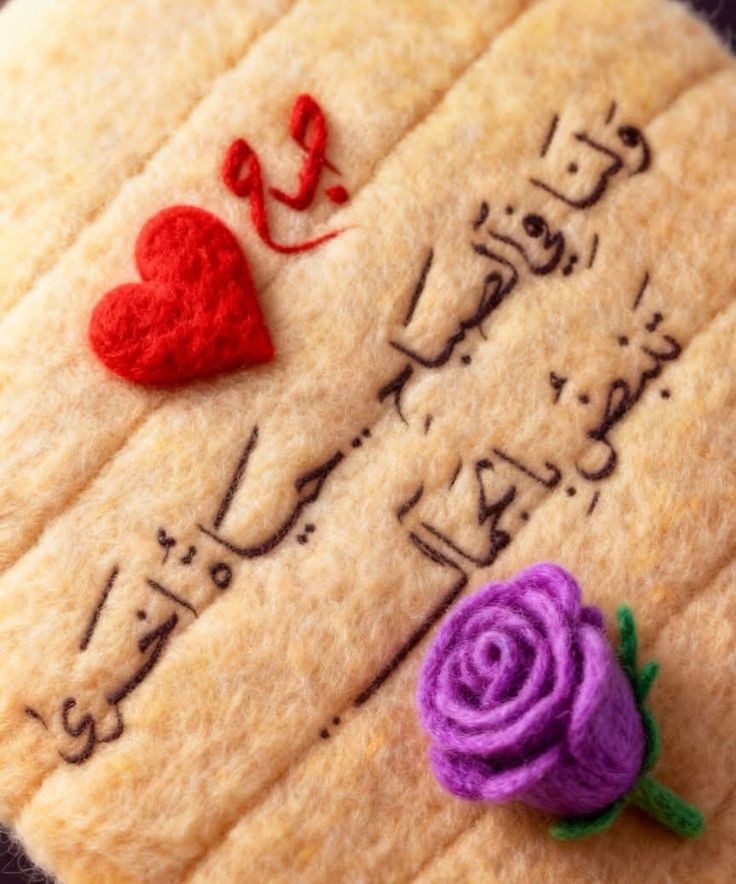 وَلنا في الصباحِ حياةٌ أخرىَ
تنبضُ بالجمال